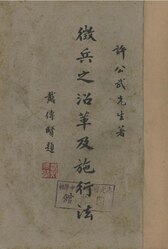 許公武先生著
徵兵之沿革及施行法
戴傳賢題